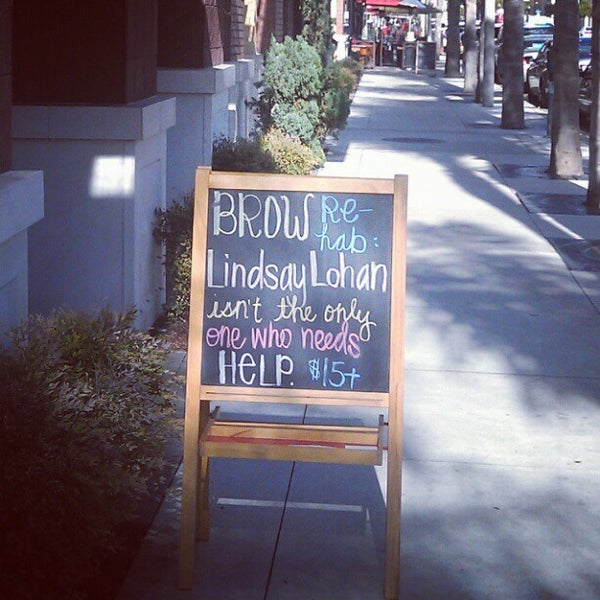 BROW Re-
hab:
Lindsay Lohan
isn't the only
one who needs
HELP. $15+